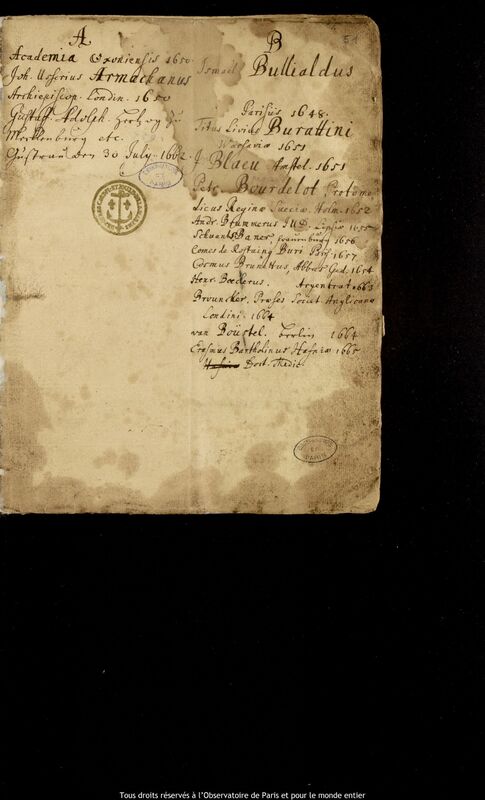 A
Academia Oxoniensis 1650.
Joh. Usserius Armachanus
Archiepiscop. Londin. 1650
Gustaff Adolph. Hertzog zu
Mecklenburg etc.
Gustrau den 30 July. 1662.
B
51
Ismael Bullialdus
Parisiis 1648.
Titus Livius Burattini
Warsaviæ 1651
J. Blaeu Amstel. 1651
Petr. Bourdelot Protome
dicus Reginæ Sueciæ Holm. 1652
Andr. Brummerus JUD. Lipsiæ 1655
Baner, frauenburg 1656
Comes de Rostaing Buri Paris. 1657
Cosmus Brunettus, Abbas Ged. 1654
Henr. Boeclerus. Argentrat. 1663
Brouncker. Præses Societ Anglicanæ
Londini. 1664
van Boüstel. Berlin 1664
Erasmus Bartholinus Hafniæ 1665
Hafniæ Doct. Medic.
OBSERVATOIRE
DE
PARIS
OBSERVATOIRE
DE
PARIS
Tous droits réservés à l'Observatoire de Paris et pour le monde entier